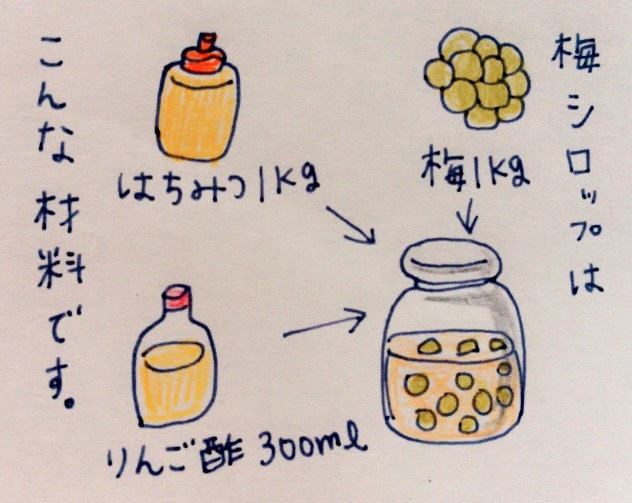 梅シロップは
梅1kg
はちみつ1kg
りんご酢300ml
こんな材料です。